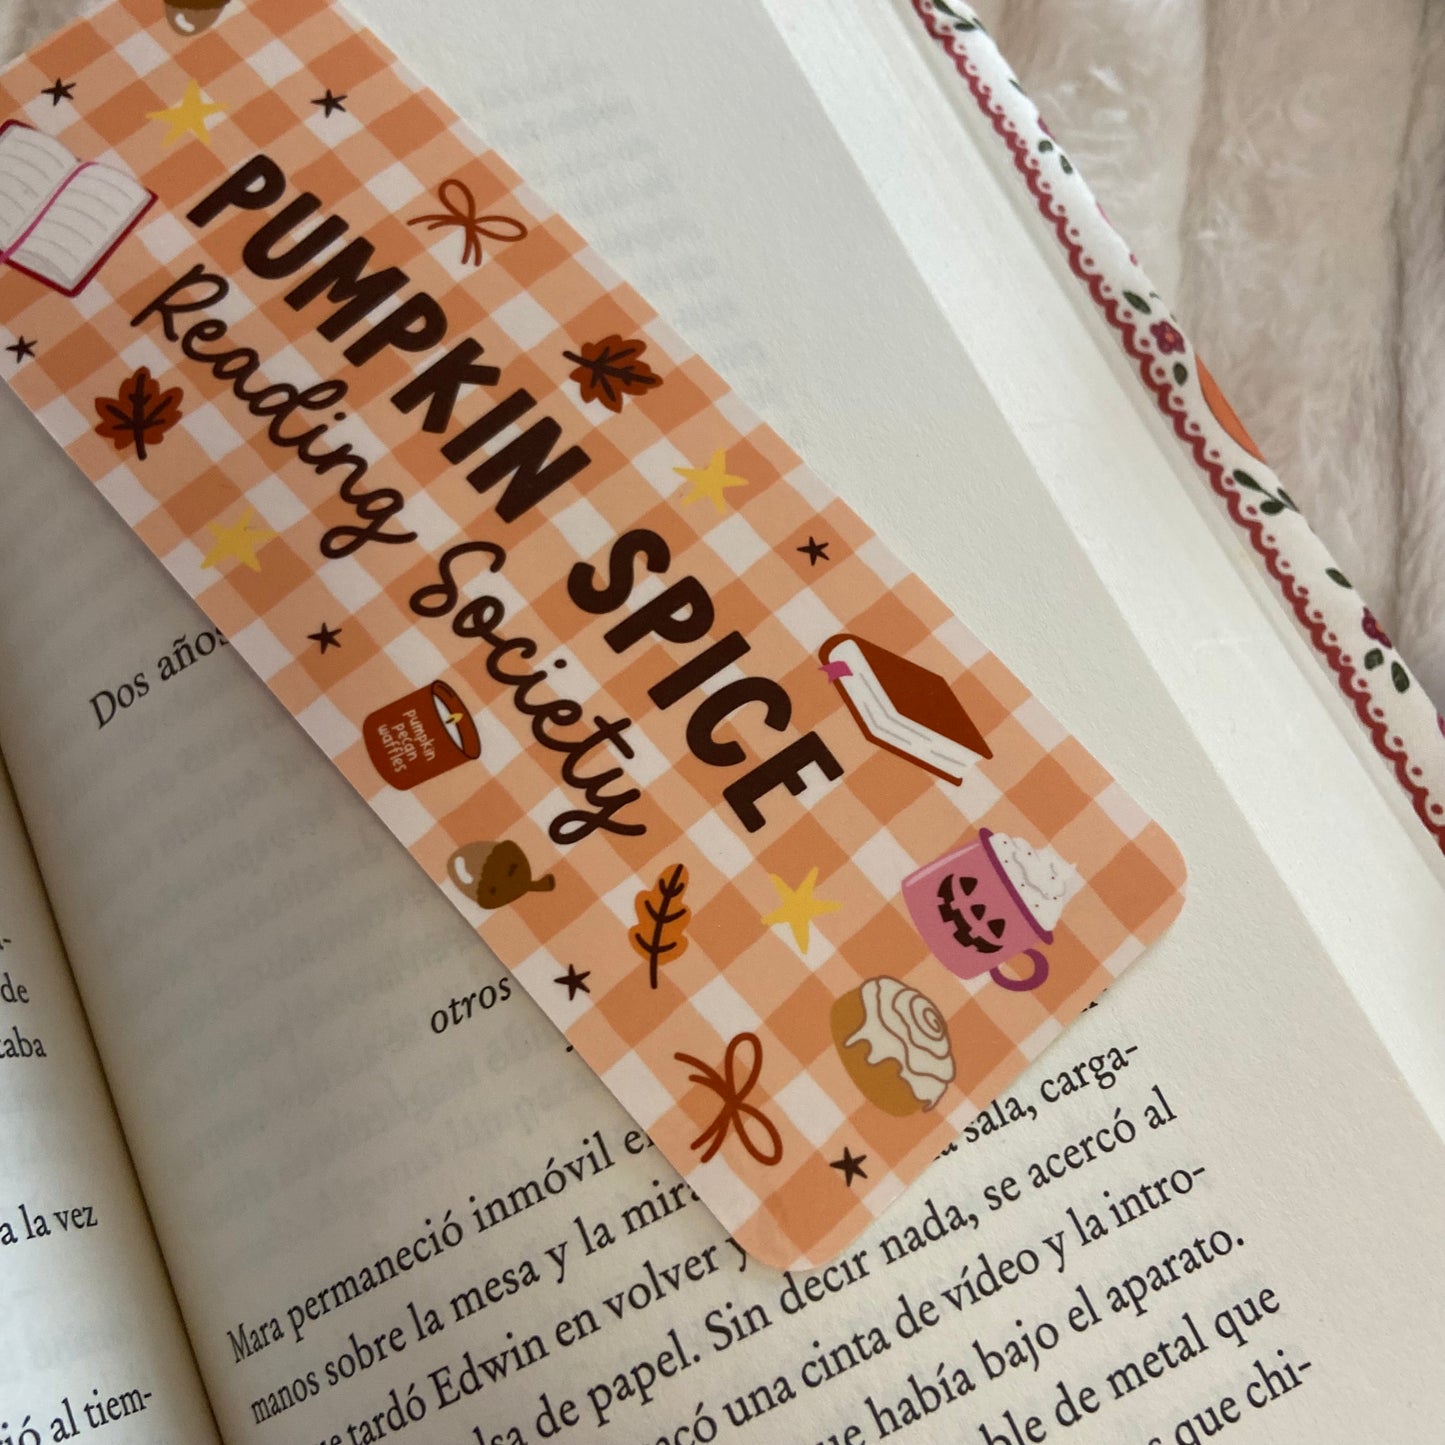 PUMPKIN SPICE
Reading Society
pumpkin
pecan
waffles
Dos años
otros
de
aba
a la vez
ió al tiem-
sala, carga-
Mara permaneció inmóvil
manos sobre la mesa y la mira
tardó Edwin en volver y
sa de papel. Sin decir nada, se acercó al
có una cinta de vídeo y la intro-
e había bajo el aparato.
ble de metal que
que chi-